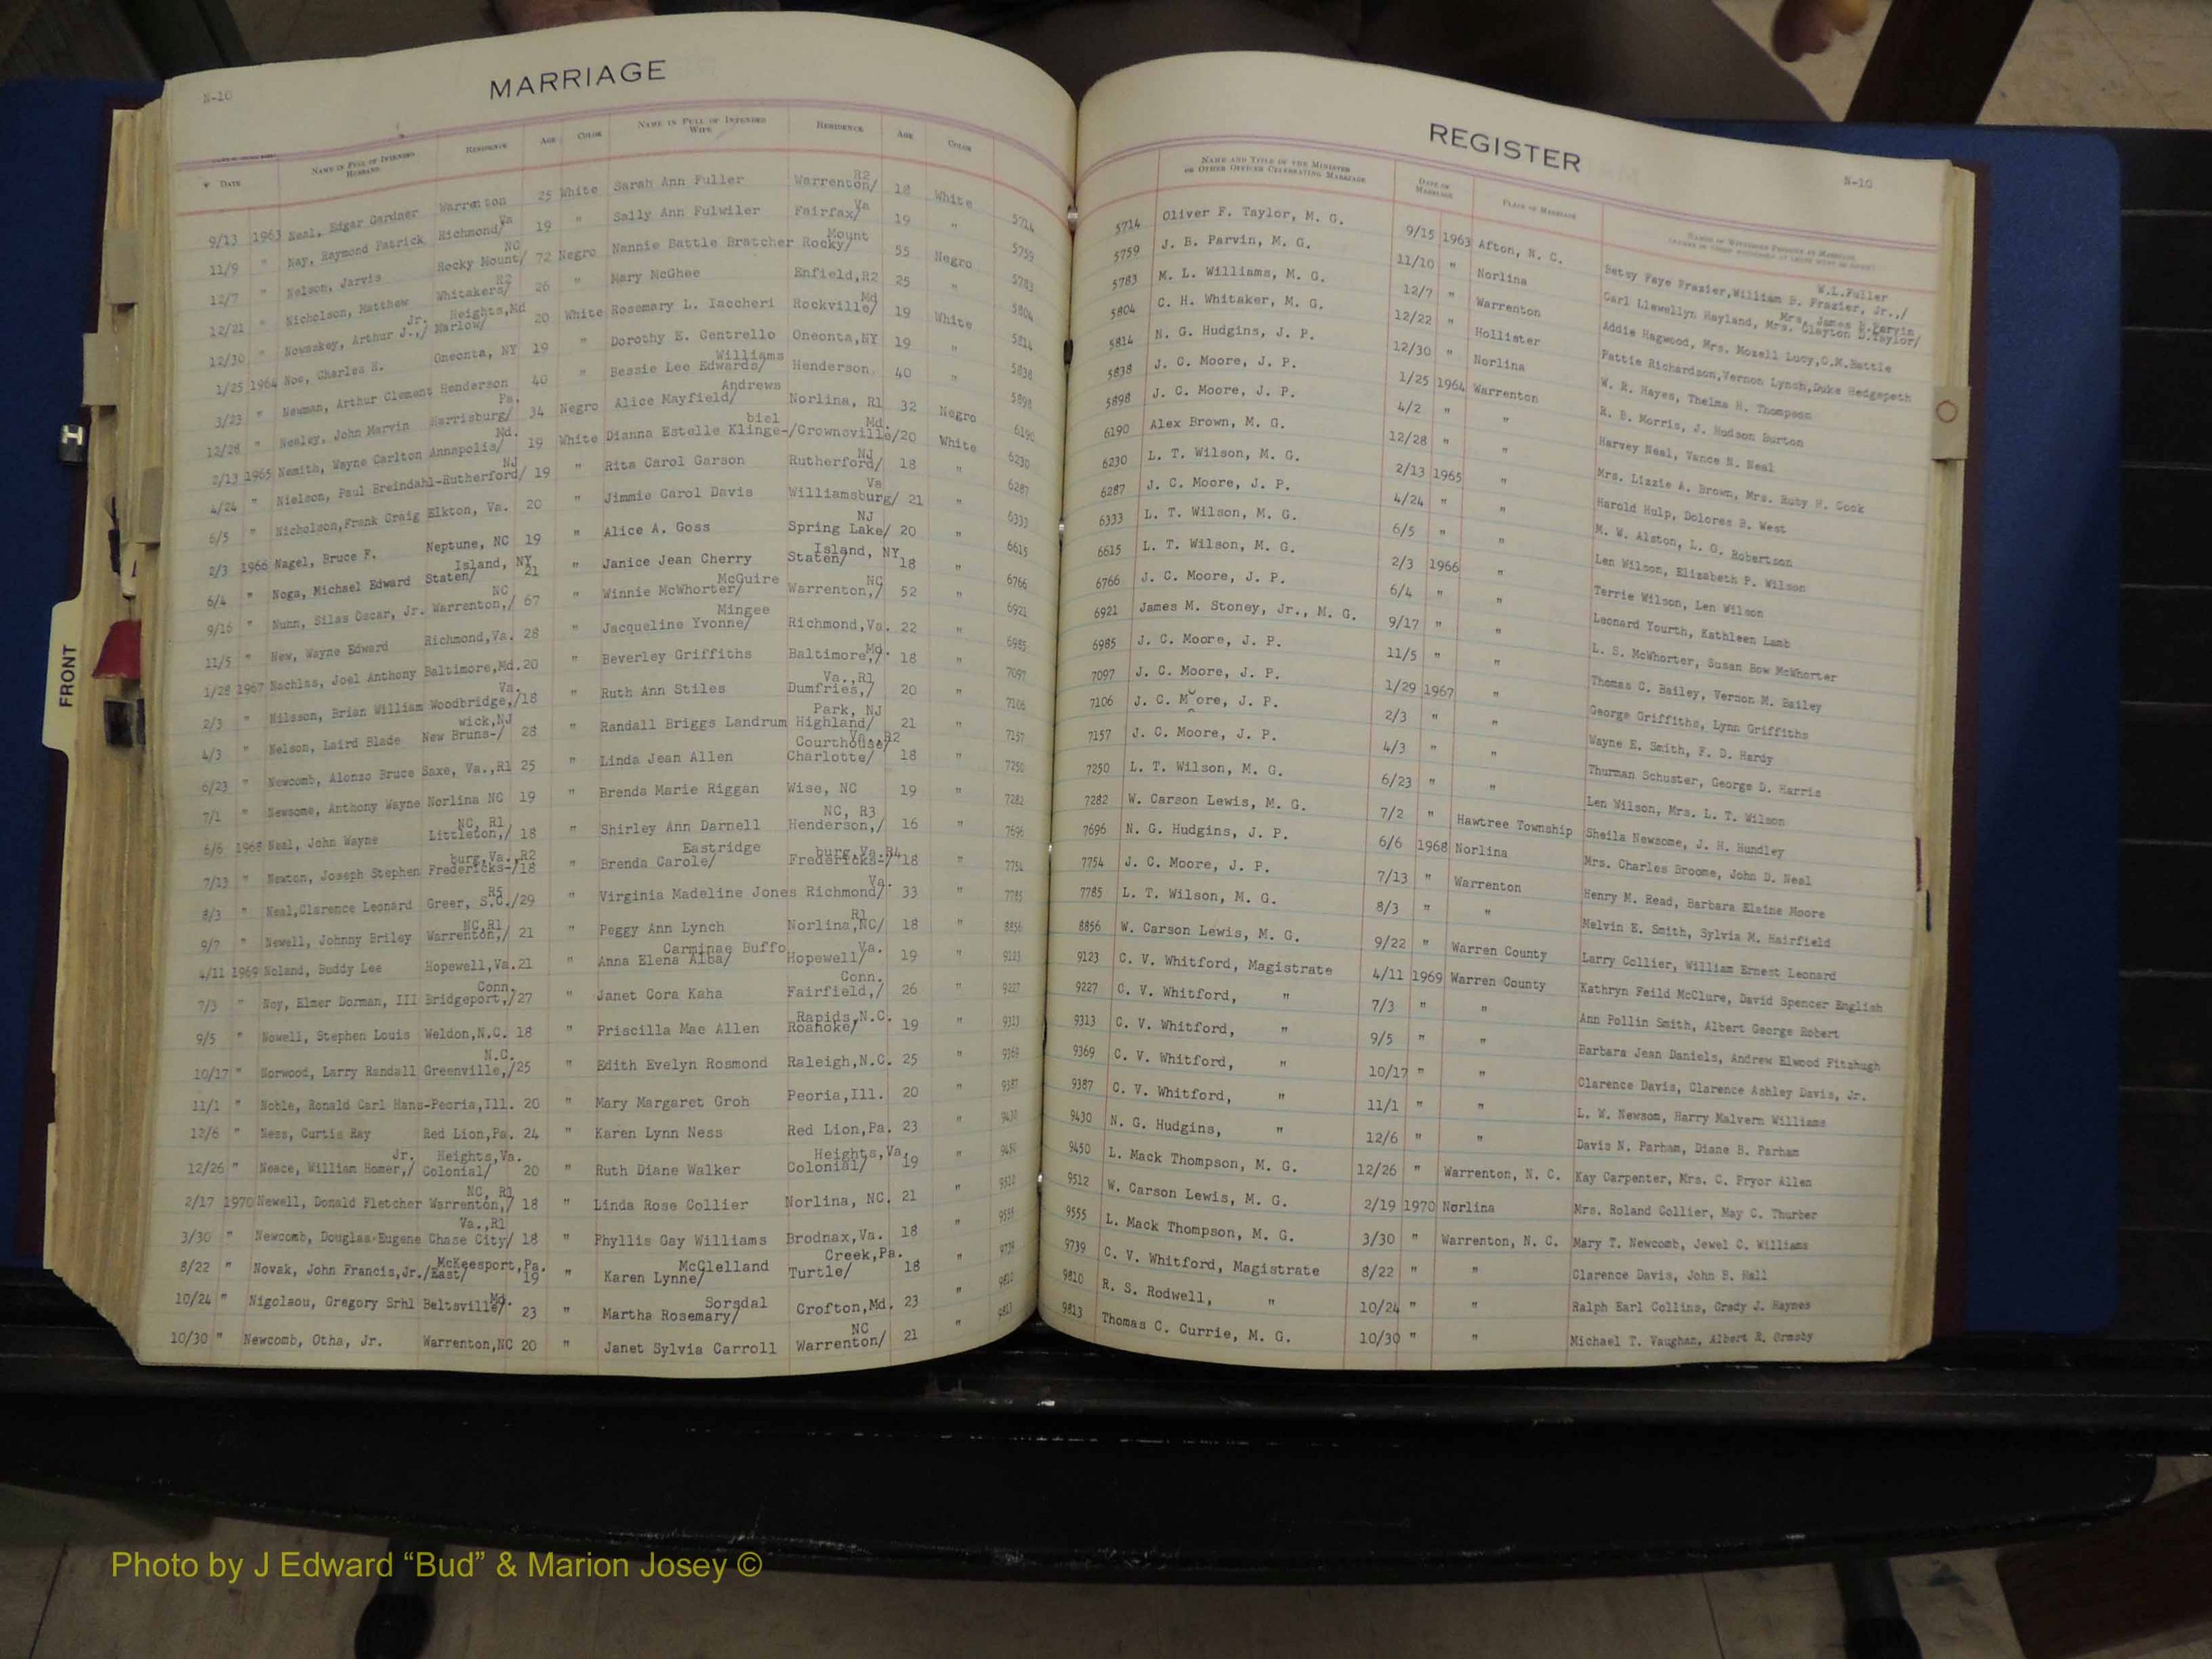 MARRIAGE
N-10
DATE NAME IN FULL OF INTENDED HUSBAND RESIDENCE AGE COLOR NAME IN FULL OF INTENDED WIFE RESIDENCE AGE COLOR
9/13 1963 Neal, Edgar Gardner Warrenton 25 White Sarah Ann Fuller Warrenton/ R2 18 White 5714
11/9 " Nay, Raymond Patrick Richmond/ Va 19 " Sally Ann Fulwiler Fairfax/ Va 19 " 5759
12/7 " Nelson, Jarvis Rocky Mount/ NC 72 Negro Nannie Battle Bratcher Rocky/ Mount 55 Negro 5783
12/21 " Nicholson, Matthew Whitakers/ R2 26 " Mary McGhee Enfield,R2 25 " 5804
12/30 " Nowackey, Arthur J.,/ Jr. Marlow/ Heights,Md 20 White Rosemary L. Iaccheri Rockville/ Md 19 White 5814
1/25 1964 Noe, Charles H. Oneonta, NY 19 " Dorothy E. Centrello Oneonta,NY 19 " 5838
3/23 " Newman, Arthur Clement Henderson 40 " Bessie Lee Edwards/ Williams Henderson 40 " 5898
12/28 " Nealey, John Marvin Harrisburg/ Pa. 34 Negro Alice Mayfield/ Andrews Norlina, R1 32 Negro 6190
2/13 1965 Nemith, Wayne Carlton Annapolis/ Md. 19 White Dianna Estelle Klinge-/ biel Crownsville/ Md. 20 White 6230
4/24 " Nielson, Paul Breindahl-Rutherford/ NJ 19 " Rita Carol Garson Rutherford/ NJ 18 " 6287
6/5 " Nicholson,Frank Craig Elkton, Va. 20 " Jimmie Carol Davis Williamsburg/ Va 21 " 6333
2/3 1966 Nagel, Bruce F. Neptune, NC 19 " Alice A. Goss Spring Lake/ NJ 20 " 6615
6/4 " Noga, Michael Edward Staten/ Island, NY 21 " Janice Jean Cherry Staten/ Island, NY 18 " 6766
9/16 " Nunn, Silas Oscar, Jr. Warrenton,/ NC 67 " Winnie McWhorter/ McGuire Warrenton,/ NC 52 " 6921
11/5 " New, Wayne Edward Richmond,Va. 28 " Jacqueline Yvonne/ Mingee Richmond,Va. 22 " 6985
1/28 1967 Nachlas, Joel Anthony Baltimore,Md. 20 " Beverley Griffiths Baltimore,/ Md. 18 " 7097
2/3 " Nilsson, Brian William Woodbridge,/ Va. 18 " Ruth Ann Stiles Dumfries,/ Va.,R1 20 " 7106
4/3 " Nelson, Laird Blade New Bruns-/ wick,NJ 28 " Randall Briggs Landrum Highland/ Park, NJ 21 " 7157
6/23 " Newcomb, Alonzo Bruce Saxe, Va.,R1 25 " Linda Jean Allen Charlotte/ Courthouse/ Va., R2 18 " 7250
7/1 " Newsome, Anthony Wayne Norlina NC 19 " Brenda Marie Riggan Wise, NC 19 " 7282
6/6 1968 Neal, John Wayne Littleton,/ NC, R1 18 " Shirley Ann Darnell Henderson,/ NC, R3 16 " 7696
7/13 " Newton, Joseph Stephen Fredericks-/ burg,Va.,R2 18 " Brenda Carole/ Eastridge Fredericks-/ burg,Va.R4 18 " 7754
8/3 " Neal,Clarence Leonard Greer, S.C./ R5 29 " Virginia Madeline Jones Richmond/ Va. 33 " 7785
9/7 " Newell, Johnny Briley Warrenton,/ NC,R1 21 " Peggy Ann Lynch Norlina,NC/ R1 18 " 8856
4/11 1969 Noland, Buddy Lee Hopewell,Va. 21 " Anna Elena Alba/ Carminae Buffo Hopewell/ Va. 19 " 9123
7/3 " Noy, Elmer Dorman, III Bridgeport,/ Conn. 27 " Janet Cora Kaha Fairfield,/ Conn. 26 " 9227
9/5 " Nowell, Stephen Louis Weldon,N.C. 18 " Priscilla Mae Allen Roanoke/ Rapids,N.C. 19 " 9313
10/17 " Norwood, Larry Randall Greenville,/ N.C. 25 " Edith Evelyn Rosmond Raleigh,N.C. 25 " 9369
11/1 " Noble, Ronald Carl Hans-Peoria,Ill. 20 " Mary Margaret Groh Peoria,Ill. 20 " 9387
12/6 " Ness, Curtis Ray Red Lion,Pa. 24 " Karen Lynn Ness Red Lion,Pa. 23 " 9430
12/26 " Neace, William Homer,/ Jr. Colonial/ Heights,Va. 20 " Ruth Diane Walker Colonial/ Heights,Va. 19 " 9450
2/17 1970 Newell, Donald Fletcher Warrenton,/ NC, R1 18 " Linda Rose Collier Norlina, NC. 21 " 9512
3/30 " Newcomb, Douglas Eugene Chase City/ Va.,R1 18 " Phyllis Gay Williams Brodnax,Va. 18 " 9555
8/22 " Novak, John Francis,Jr./East/ McKeesport,Pa. 19 " Karen Lynne/ McClelland Turtle/ Creek,Pa. 18 " 9739
10/24 " Nigolaou, Gregory Srhl Beltsville/ Md. 23 " Martha Rosemary/ Sorsdal Crofton,Md. 23 " 9810
10/30 " Newcomb, Otha, Jr. Warrenton,NC 20 " Janet Sylvia Carroll Warrenton/ NC 21 " 9813
REGISTER
N-10
NAME AND TITLE OF THE MINISTER OR OTHER OFFICER CELEBRATING MARRIAGE DATE OF MARRIAGE PLACE OF MARRIAGE
5714 Oliver F. Taylor, M. G. 9/15 1963 Afton, N. C. Betsy Faye Frazier,William B. Frazier, Jr.,/ W.L.Fuller
5759 J. B. Parvin, M. G. 11/10 " Norlina Carl Llewellyn Hayland, Mrs. Clayton D.Taylor/ Mrs. James B.Parvin
5783 M. L. Williams, M. G. 12/7 " Warrenton Addie Hagwood, Mrs. Mozell Lucy,O.M.Battle
5804 C. H. Whitaker, M. G. 12/22 " Hollister Pattie Richardson,Vernon Lynch,Duke Hedgepeth
5814 N. G. Hudgins, J. P. 12/30 " Norlina W. R. Hayes, Thelma H. Thompson
5838 J. C. Moore, J. P. 1/25 1964 Warrenton R. B. Morris, J. Hudson Burton
5898 J. C. Moore, J. P. 4/2 " " Harvey Neal, Vance N. Neal
6190 Alex Brown, M. G. 12/28 " " Mrs. Lizzie A. Brown, Mrs. Ruby H. Cook
6230 L. T. Wilson, M. G. 2/13 1965 " Harold Hulp, Dolores B. West
6287 J. C. Moore, J. P. 4/24 " " M. W. Alston, L. G. Robertson
6333 L. T. Wilson, M. G. 6/5 " " Len Wilson, Elizabeth P. Wilson
6615 L. T. Wilson, M. G. 2/3 1966 " Terrie Wilson, Len Wilson
6766 J. C. Moore, J. P. 6/4 " " Leonard Yourth, Kathleen Lamb
6921 James M. Stoney, Jr., M. G. 9/17 " " L. S. McWhorter, Susan Bow McWhorter
6985 J. C. Moore, J. P. 11/5 " " Thomas C. Bailey, Vernon M. Bailey
7097 J. C. Moore, J. P. 1/29 1967 " George Griffiths, Lynn Griffiths
7106 J. C. Moore, J. P. 2/3 " " Wayne E. Smith, F. D. Hardy
7157 J. C. Moore, J. P. 4/3 " " Thurman Schuster, George D. Harris
7250 L. T. Wilson, M. G. 6/23 " " Len Wilson, Mrs. L. T. Wilson
7282 W. Carson Lewis, M. G. 7/2 " Hawtree Township Sheila Newsome, J. H. Hundley
7696 N. G. Hudgins, J. P. 6/6 1968 Norlina Mrs. Charles Broome, John D. Neal
7754 J. C. Moore, J. P. 7/13 " Warrenton Henry M. Read, Barbara Elaine Moore
7785 L. T. Wilson, M. G. 8/3 " " Melvin E. Smith, Sylvia M. Hairfield
8856 W. Carson Lewis, M. G. 9/22 " Warren County Larry Collier, William Ernest Leonard
9123 C. V. Whitford, Magistrate 4/11 1969 Warren County Kathryn Feild McClure, David Spencer English
9227 C. V. Whitford, " 7/3 " " Ann Pollin Smith, Albert George Robert
9313 C. V. Whitford, " 9/5 " " Barbara Jean Daniels, Andrew Elwood Fitzhugh
9369 C. V. Whitford, " 10/17 " " Clarence Davis, Clarence Ashley Davis, Jr.
9387 C. V. Whitford, " 11/1 " " L. W. Newsom, Harry Malvern Williams
9430 N. G. Hudgins, " 12/6 " " Davis N. Parham, Diane B. Parham
9450 L. Mack Thompson, M. G. 12/26 " Warrenton, N. C. Kay Carpenter, Mrs. C. Pryor Allen
9512 W. Carson Lewis, M. G. 2/19 1970 Norlina Mrs. Roland Collier, May C. Thurber
9555 L. Mack Thompson, M. G. 3/30 " Warrenton, N. C. Mary T. Newcomb, Jewel C. Williams
9739 C. V. Whitford, Magistrate 8/22 " " Clarence Davis, John B. Hall
9810 R. S. Rodwell, " 10/24 " " Ralph Earl Collins, Grady J. Haynes
9813 Thomas C. Currie, M. G. 10/30 " " Michael T. Vaughan, Albert R. Ormsby
FRONT
Photo by J Edward “Bud” & Marion Josey ©